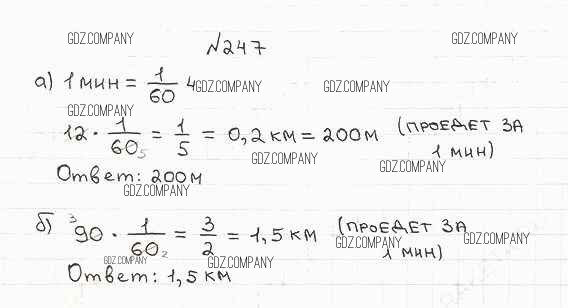 GDZ.COMPANY GDZ.COMPANY
№247
а) 1 мин = 1/60 ч GDZ.COMPANY GDZ.COMPANY
GDZ.COMPANY
12 · 1/60 5 = 1/5 = 0,2 км = 200 м (ПРОЕДЕТ ЗА
GDZ.COMPANY 1 мин)
GDZ.COMPANY
Ответ: 200 м
GDZ.COMPANY
б) 3 90 · 1/60 2 = 3/2 = 1,5 км (ПРОЕДЕТ ЗА
GDZ.COMPANY GDZ.COMPANY
1 мин)
GDZ.COMPANY GDZ.COMPANY
Ответ: 1,5 км